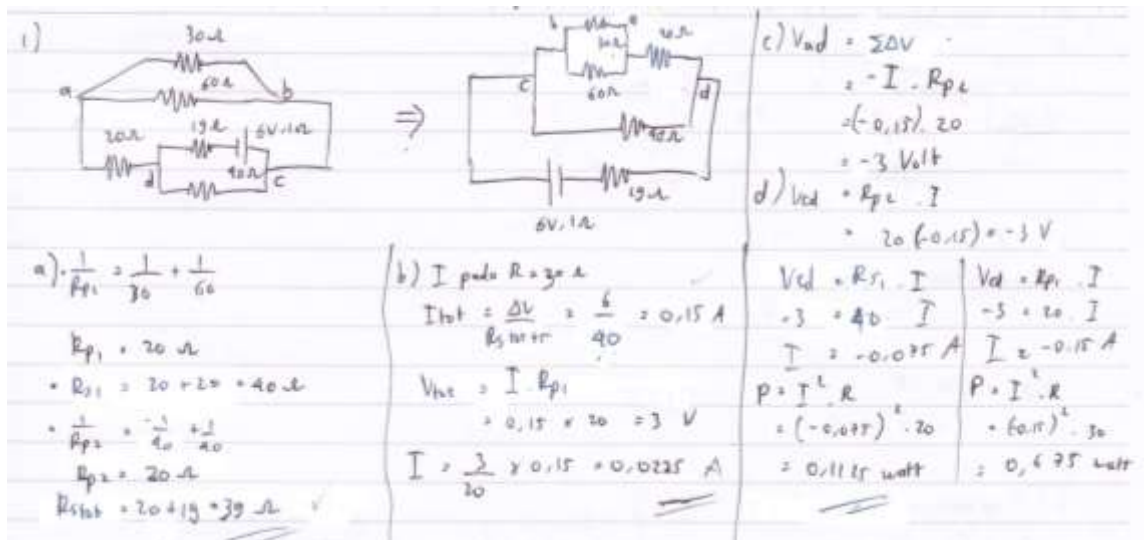 1)
30Ω
60Ω
a
b
20Ω
19Ω
6V, 1Ω
40Ω
d
c
⇒
b
a
30Ω
20Ω
60Ω
c
d
40Ω
19Ω
6V, 1Ω
a) • 1/Rp1 = 1/30 + 1/60
Rp1 = 20 Ω
• Rs1 = 20 + 20 = 40 Ω
• 1/Rp2 = 1/40 + 1/40
Rp2 = 20 Ω
Rstot = 20 + 19 = 39 Ω
b) I pada R = 30 Ω
Itot = ΔV/Rstot+r = 6/40 = 0,15 A
= I . Rp1
= 0,15 x 20 = 3 V
I = 3/20 x 0,15 = 0,0225 A
c) Vad = ΣΔV
= - I . Rp2
= (-0,15) . 20
= -3 Volt
d) Vcd = Rp2 . I
= 20 (-0,15) = -3 V
Vcd = Rs1 . I
-3 = 40 I
I = -0,075 A
P = I² . R
= (-0,075)² . 20
= 0,1125 watt
Vcd = Rp1 . I
-3 = 20 . I
I = -0,15 A
P = I² . R
= (0,15)² . 30
= 0,675 watt